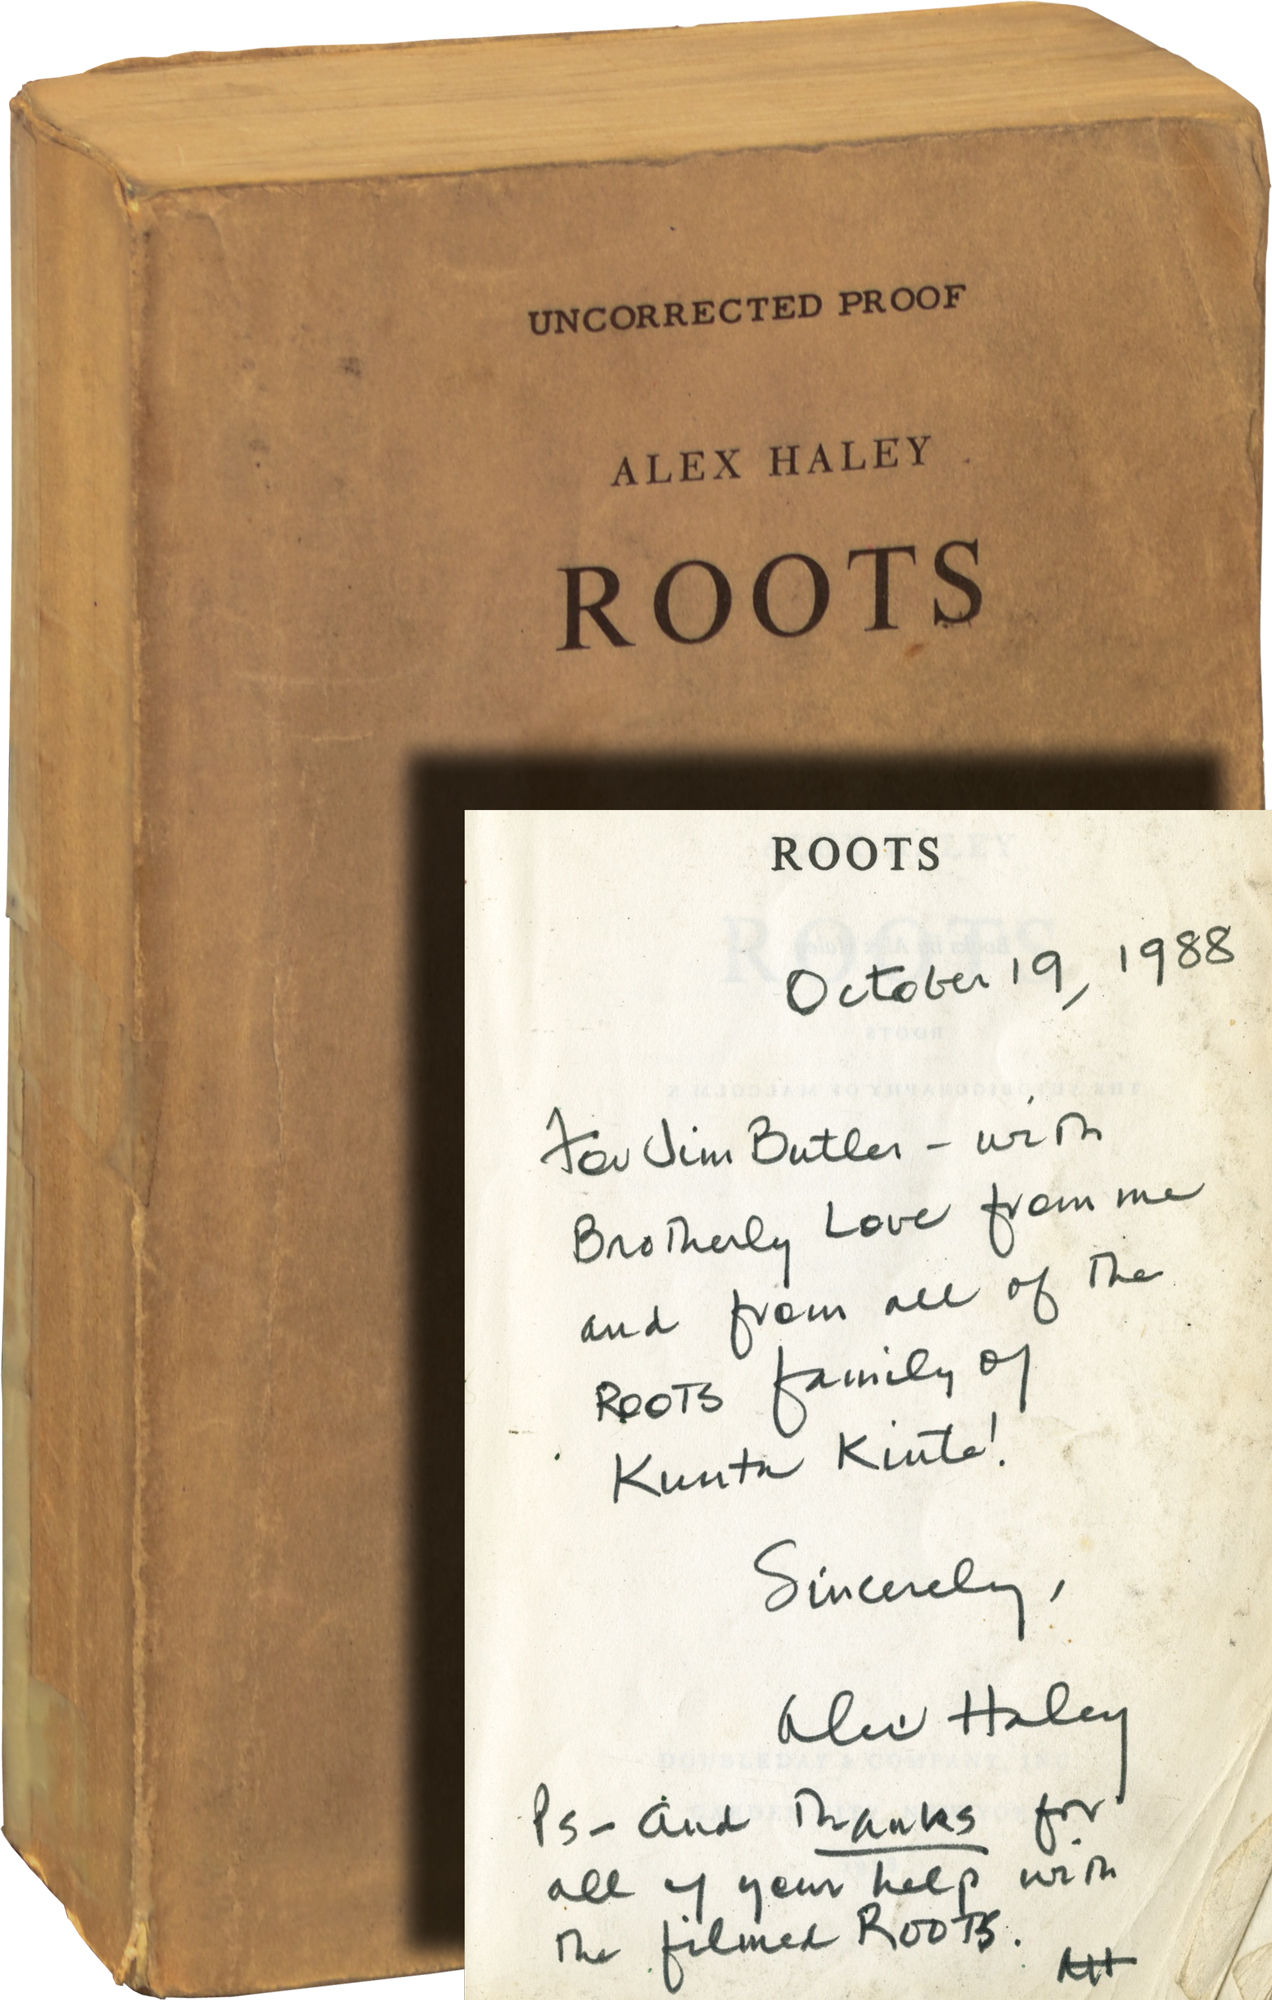 UNCORRECTED PROOF
ALEX HALEY
ROOTS
ROOTS
October 19, 1988
For Jim Butler – with
Brotherly Love from me
and from all of the
ROOTS family of
Kunta Kinte!
Sincerely,
Alex Haley
Ps – and thanks for
all of your help with
the filmed ROOTS.
AH
ROOTS
THE AUTOBIOGRAPHY OF MALCOLM X
DOUBLEDAY & COMPANY, INC.